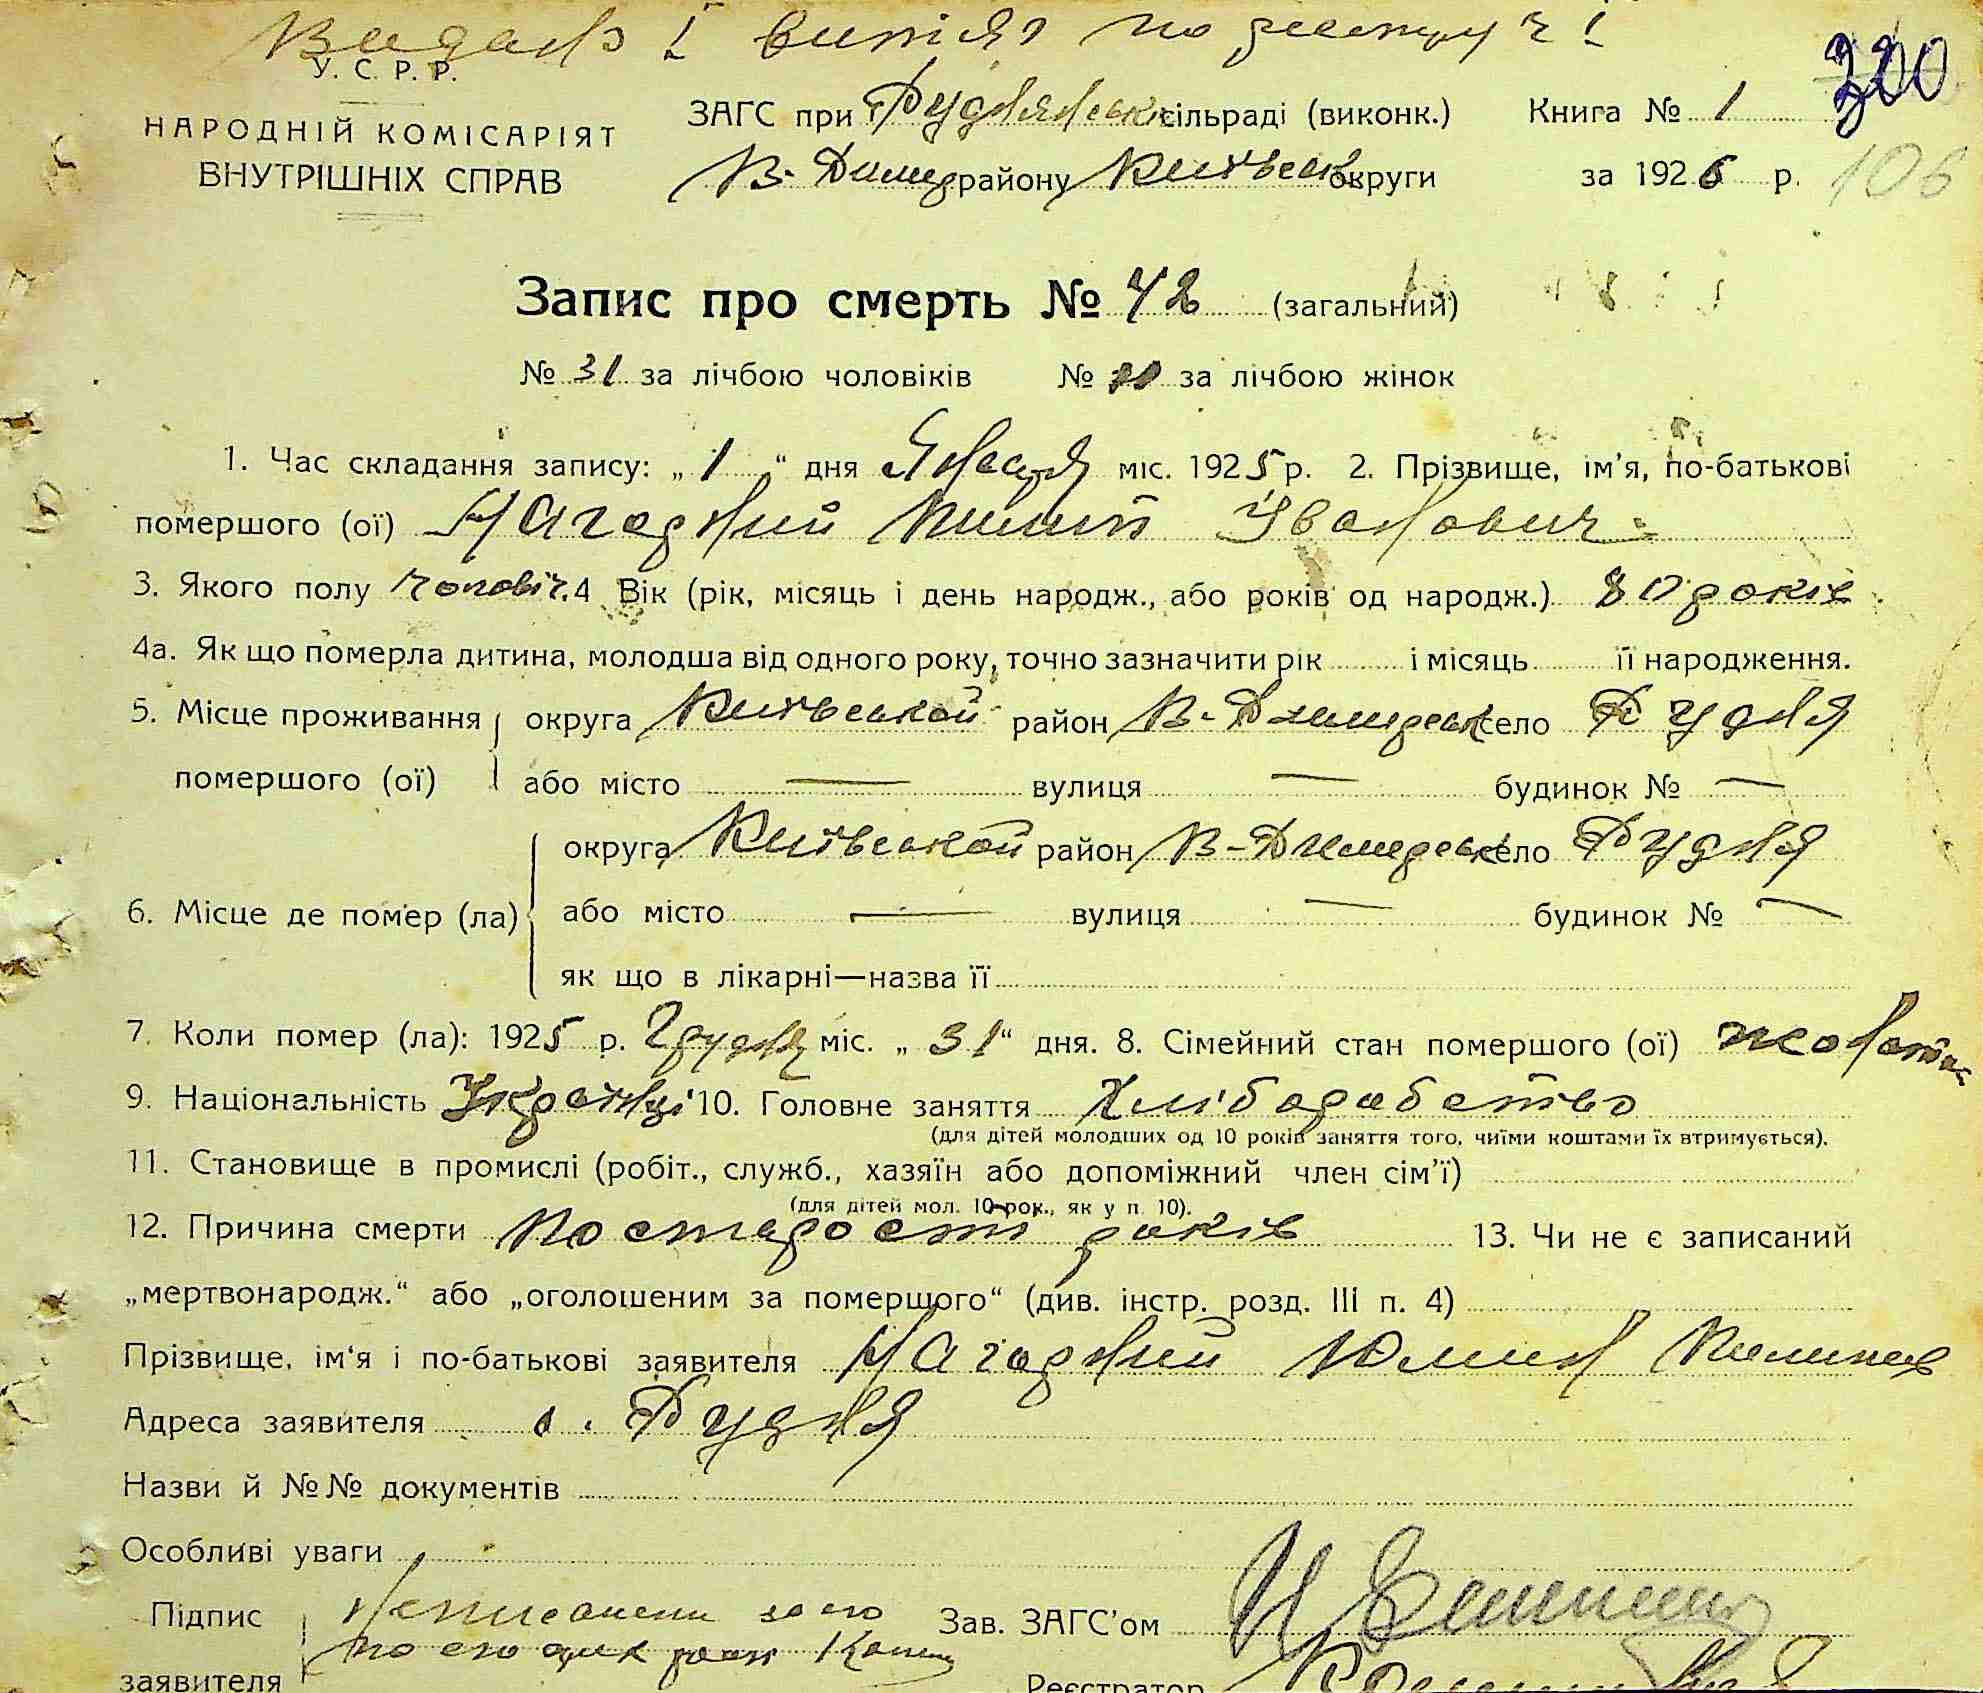 У. С. Р. Р.
НАРОДНІЙ КОМІСАРІЯТ
ВНУТРІШНІХ СПРАВ
ЗАГС при Руднянськ сільраді (виконк.)
В-Димер району Київськ округи
Книга № 1
200
за 1926 р.
106
Запис про смерть № 42 (загальний)
№ 31 за лічбою чоловіків № за лічбою жінок
1. Час складання запису: „1“ дня Января міс. 1925 р. 2. Прізвище, ім'я, по-батькові
помершого (ої) Нагорний Пилип Іванович
3. Якого полу чоловіч. 4 Вік (рік, місяць і день народж., або років од народж.) 80 років
4а. Як що померла дитина, молодша від одного року, точно зазначити рік і місяць її народження.
5. Місце проживання округа Київськой район В-Димерськ село Рудня
помершого (ої) або місто — вулиця — будинок № —
округа Київськой район В-Димерськ село Рудня
6. Місце де помер (ла) або місто — вулиця — будинок № —
як що в лікарні—назва її
7. Коли помер (ла): 1925 р. Грудня міс. „31“ дня. 8. Сімейний стан помершого (ої)
9. Національність Українці 10. Головне заняття Хліборобство
(для дітей молодших од 10 років заняття того, чиїми коштами їх втримується).
11. Становище в промислі (робіт., служб., хазяїн або допоміжний член сім'ї)
(для дітей мол. 10 рок., як у п. 10).
12. Причина смерти По старости років 13. Чи не є записаний
„мертвонародж.“ або „оголошеним за померщого“ (див. інстр. розд. III п. 4)
Прізвище, ім'я і по-батькові заявителя Нагорний Юмин Пилипов
Адреса заявителя с. Рудня
Назви й №№ документів
Особливі уваги
Підпис
заявителя
Зав. ЗАГС'ом
Реєстратор